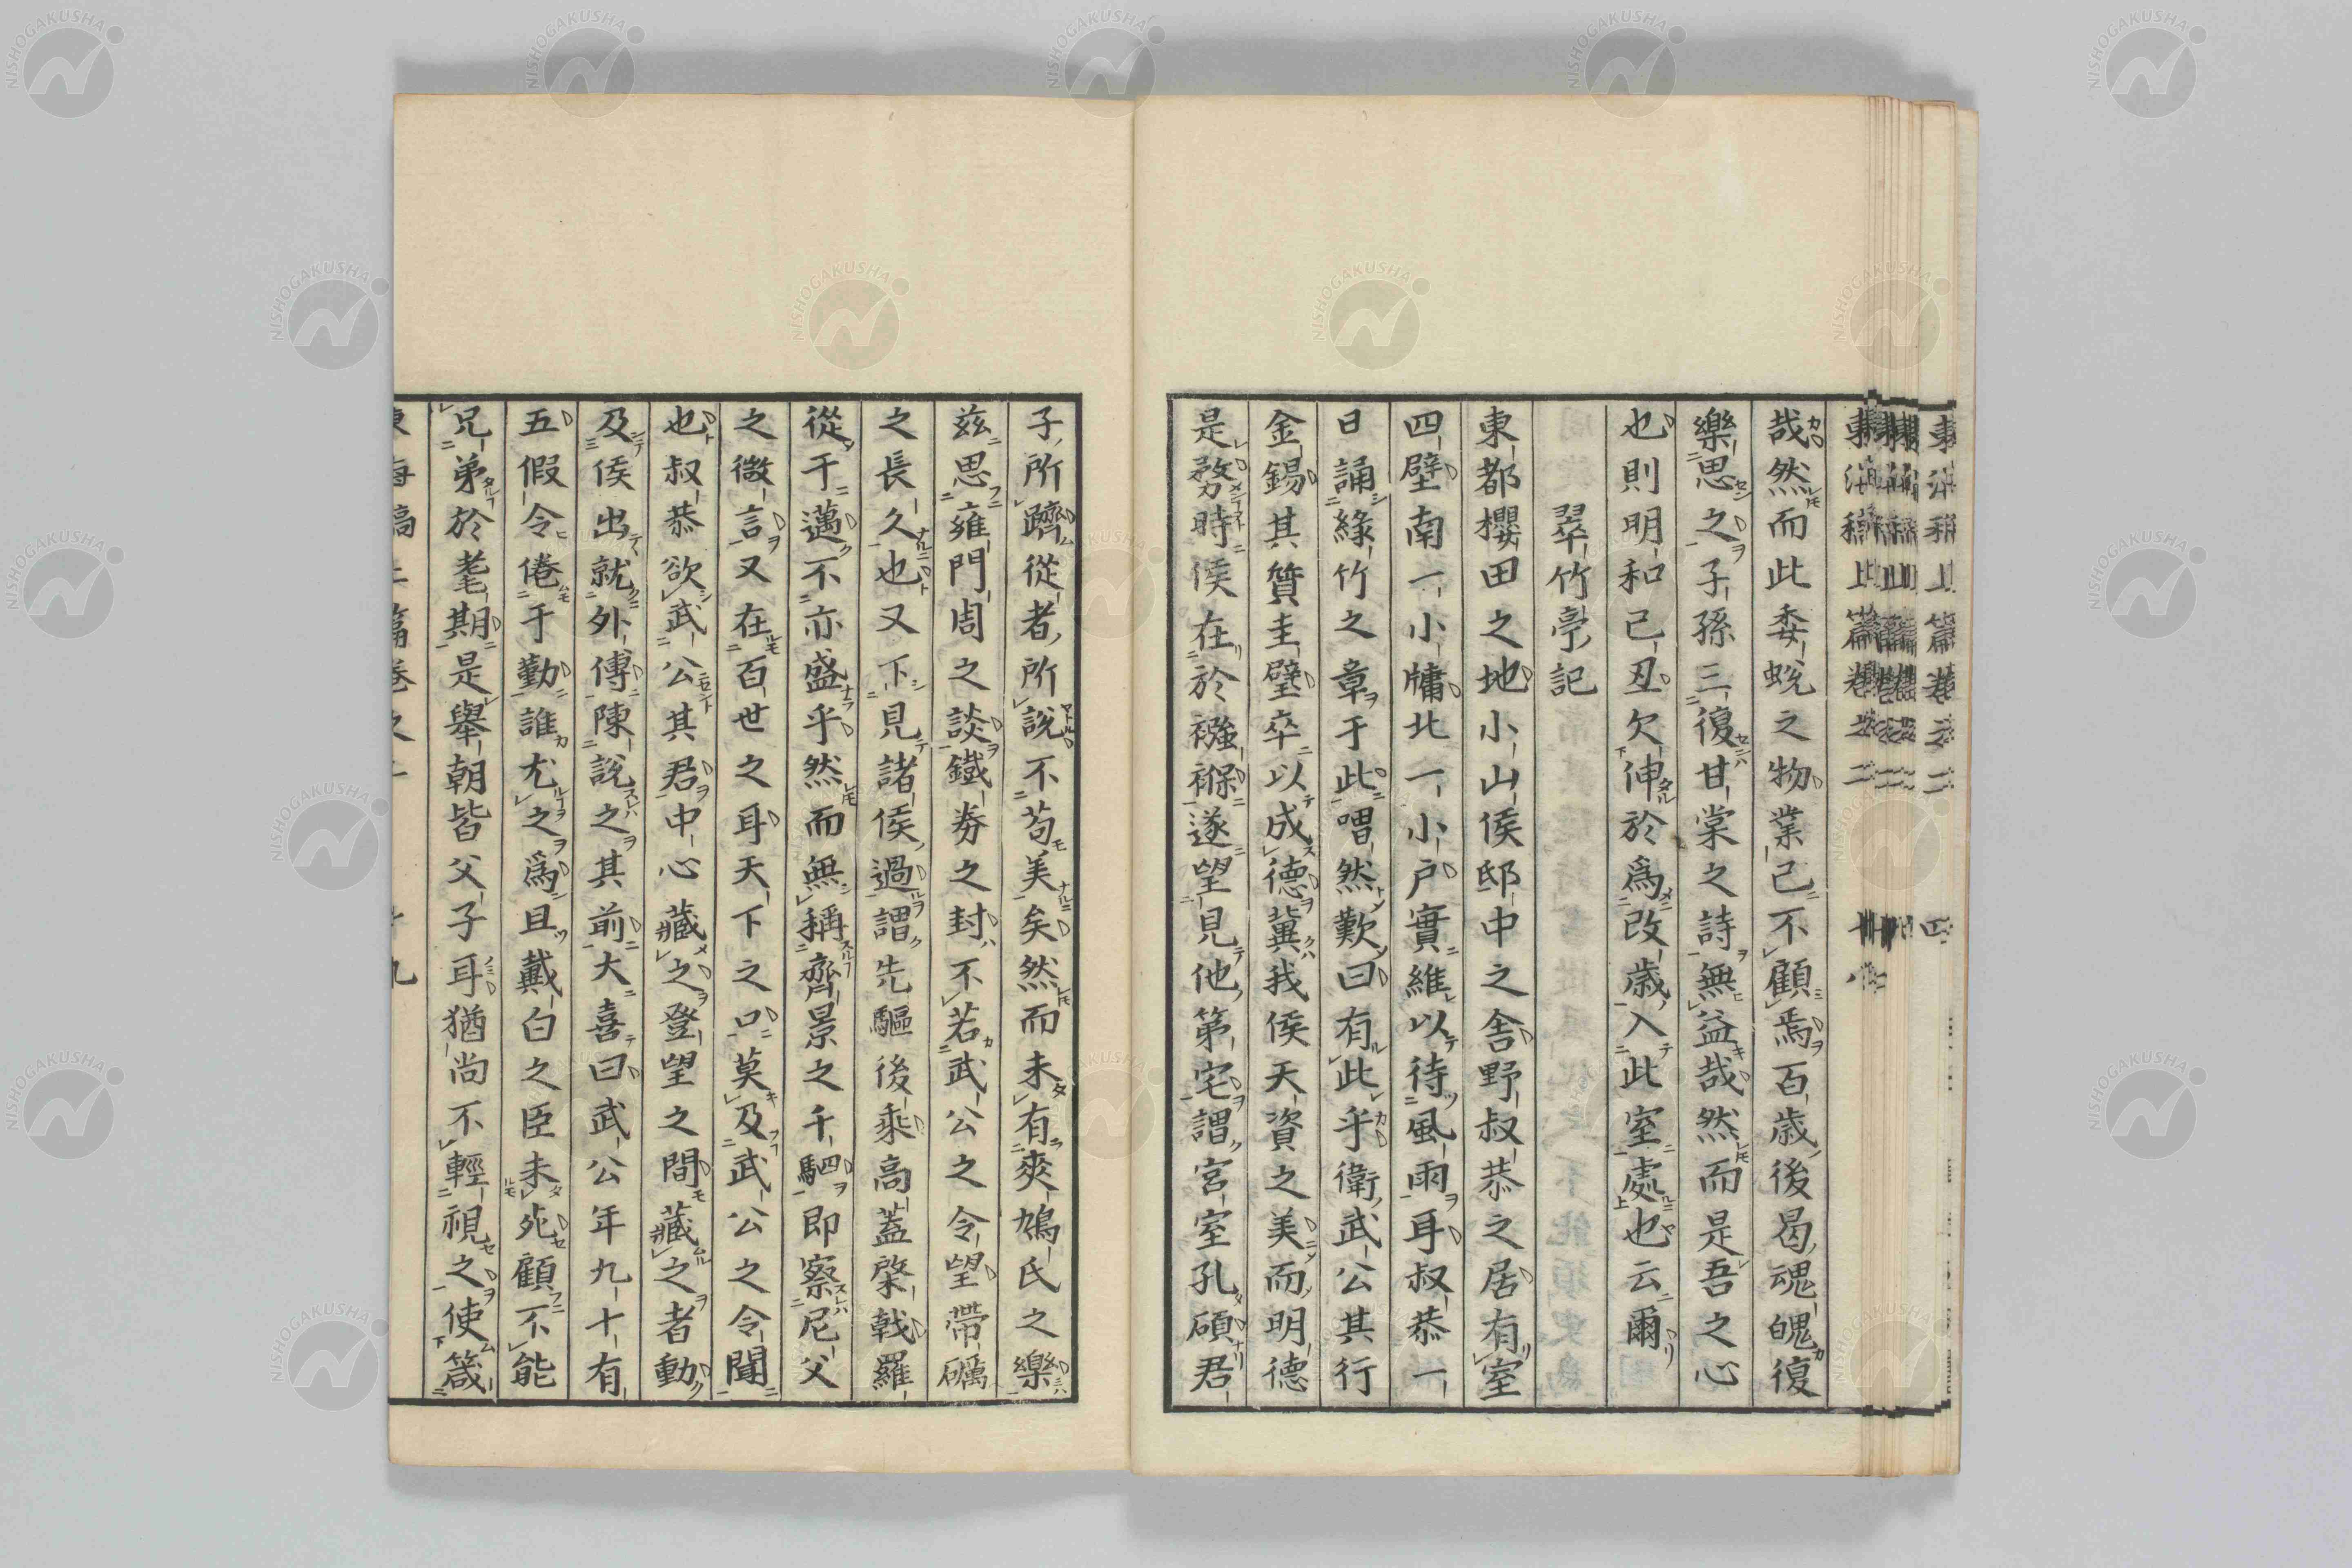 哉然而此委蛻之物業已不顧焉百歲後曷魂魄復
樂思之子孫三復甘棠之詩無益哉然而是吾之心
也則明和己丑欠伸於爲改歲入此室處也云爾
翠竹亭記
東都櫻田之地小山侯邸中之舍野叔恭之居有室
四壁南一小牗北一小戶實維以待風雨耳叔恭一
日誦綠竹之章于此喟然歎曰有此乎衛武公其行
金錫其質圭璧卒以成德冀我侯天資之美而明德
是務時侯在於襁褓遂望見他第宅謂宮室孔碩君
子所躋從者所說不苟美矣然而未有爽鳩氏之樂
茲思雍門周之談鐵券之封不若武公之令望帶礪
之長久也又下見諸侯過謂先驅後乘高蓋棨戟羅
從于邁不亦盛乎然而無稱齊景之千駟即察尼父
之徵言又在百世之耳天下之口莫及武公之令聞
也叔恭欲武公其君中心藏之登望之間藏之者動
及侯出就外傅陳說之其前大喜曰武公年九十有
五假令倦于勤誰尤之爲且戴白之臣未死顧不能
兄弟於耄期是舉朝皆父子耳猶尚不輕視之使箴
NISHOGAKUSHA